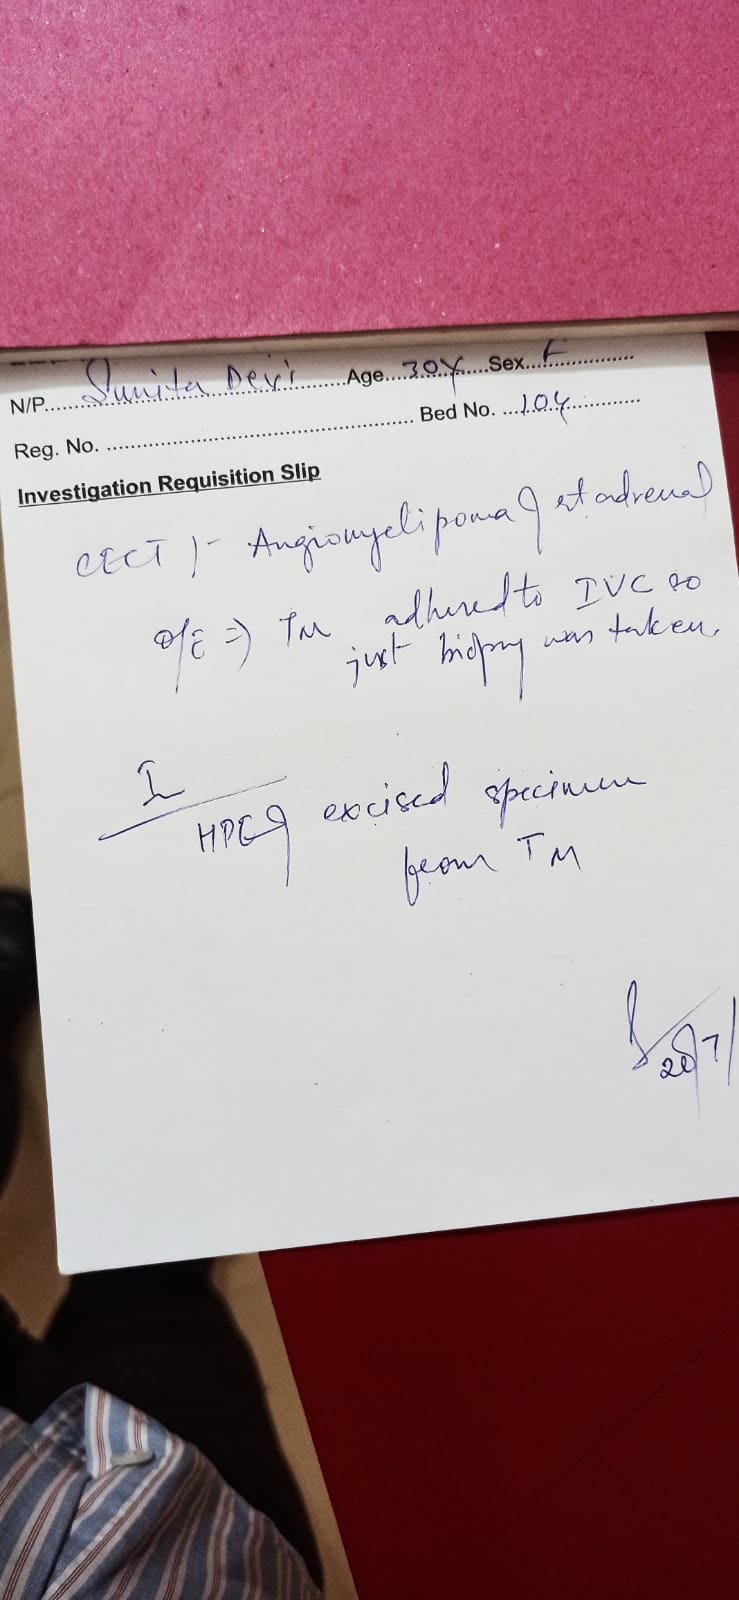 N/P..... Sunita Devi ......Age...30Y...Sex...F...............
Reg. No. .................................................... Bed No. ...104..............
Investigation Requisition Slip
CECT :- Angiomyelipoma of rt adrenal
O/E => TM adhered to IVC so
just biopsy was taken.
I
HPE of excised specimen
from TM
20/7/